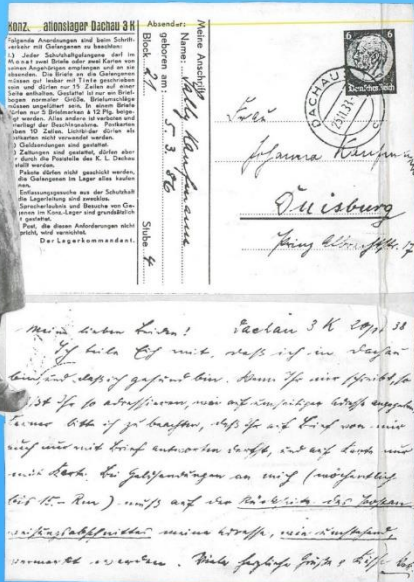 Konz. ationslager Dachau 3 K
Folgende Anordnungen sind beim Schrift-
verkehr mit Gefangenen zu beachten:
1.) Jeder Schutzhaftgefangene darf im
Monat zwei Briefe oder zwei Karten von
seinen Angehörigen empfangen und an sie
absenden. Die Briefe an die Gefangenen
müssen gut lesbar mit Tinte geschrieben
sein und dürfen nur 15 Zeilen auf einer
Seite enthalten. Gestattet ist nur ein Brief-
bogen normaler Größe. Briefumschläge
müssen ungefüttert sein. In einem Briefe
dürfen nur 5 Briefmarken à 12 Pfg. beige-
gt werden. Alles andere ist verboten und
erliegt der Beschlagnahme. Postkarten
ben 10 Zeilen. Lichtbilder dürfen als
tkarten nicht verwendet werden.
) Geldsendungen sind gestattet.
) Zeitungen sind gestattet, dürfen aber
r durch die Poststelle des K. L. Dachau
stellt werden.
Pakete dürfen nicht geschickt werden,
die Gefangenen im Lager alles kaufen
nen.
Entlassungsgesuche aus der Schutzhaft
die Lagerleitung sind zwecklos.
Sprecherlaubnis und Besuche von Ge-
genen im Konz.-Lager sind grundsätzlich
t gestattet.
Post, die diesen Anforderungen nicht
pricht, wird vernichtet.
Der Lagerkommandant.
Absender:
Meine Anschrift:
Name: Sally Kaufmann
geboren am: 5. 3. 86
Block 21 Stube 4
6 6
Deutsches Reich
DACHAU
Frau
Johanna Kaufmann
Duisburg
Prinz Albrechtstr. 17
Meine lieben Beiden! Dachau 3 K 38
Ich teile Euch mit, daß ich in Dachau
bin und daß ich gesund bin. Wenn Ihr mir schreibt, so
Ihr so adressieren, wie auf umseitiger Adresse angegeben
Ferner bitte ich zu beachten, daß Ihr auf Brief von mir
auch nur mit Brief antworten dürft, und auf Karte nur
mit Karte. Bei Geldsendungen an mich (wöchentlich
bis 15.- Rm) muß auf der Rückseite des
meine Adresse, wie umstehend,
vermerkt werden. Viele herzliche Grüße & Küsse